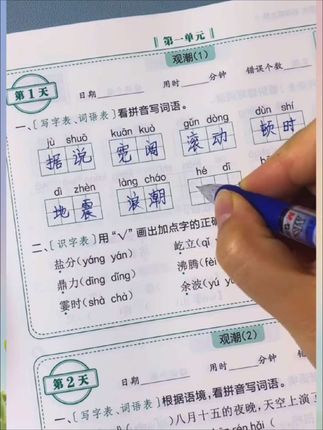 第一单元
观潮(1)
第1天
日期____ 用时____分钟 错误个数
一、[写字表、词语表]看拼音写词语。
jù shuō kuān kuò gǔn dòng dùn shí
据说 宽阔 滚动 顿时
dì zhèn làng cháo hé dī
地震 浪潮
二、[识字表]用“√”画出加点字的正确
盐分(yáng yán) 屹立(qì
鼎力(dīng dǐng) 沸腾(fèi
霎时(shà chà) 余波(yú
观潮(2)
第2天
日期____ 用时____分钟 错
一、[写字表、词语表]根据语境,看拼音写词语。
)八月十五的夜晚,天空上演